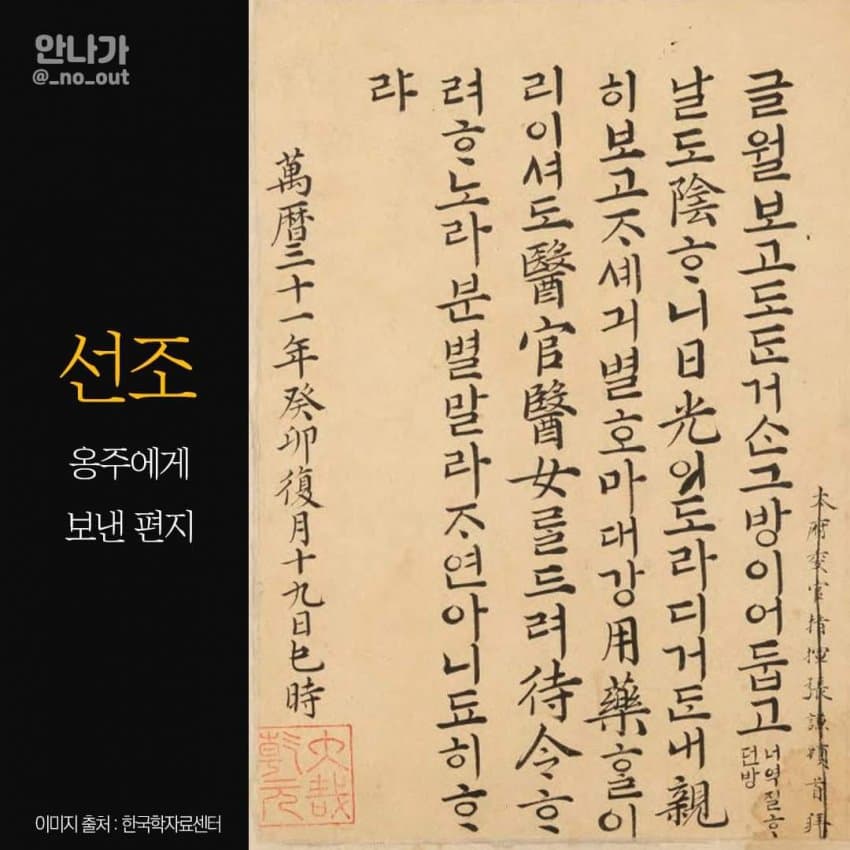 안나가
@_no_out
선조
옹주에게
보낸 편지
이미지 출처 : 한국학자료센터
本府官指揮張謙頓首拜
글월보고도ᄃᆞᆫ거ᄉᆞᆫ그방이어둡고
너역질ᄒᆞ
던방
날도陰ᄒᆞ니日光이도라디거ᄃᆞᆫ내親
히보고ᄌᆞ셰긔별호마대강用藥ᄒᆞᆯ이
리이셔도醫官醫女를드려待令ᄒᆞ
려ᄒᆞ노라분별말라ᄌᆞ연아니됴히ᄒᆞ
랴
萬曆三十一年癸卯復月十九日巳時
大哉
乾元